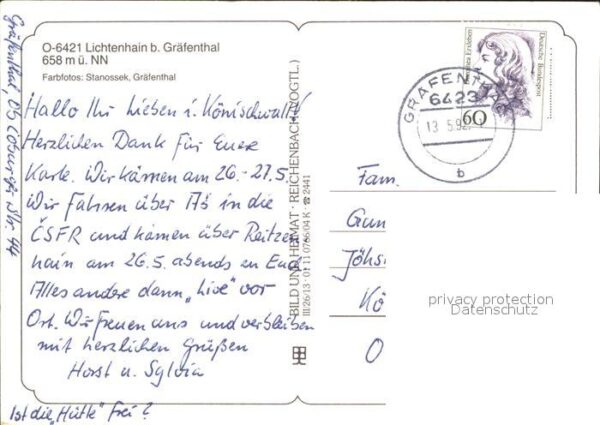 O-6421 Lichtenhain b. Gräfenthal
658 m ü. NN
Farbfotos: Stanossek, Gräfenthal
Gräfenthal, Coburger Str. 44
Hallo Ihr Lieben i. Königswald!
Herzlichen Dank für Eure
Karte. Wir kämen am 26.-27.5
Wir fahren über in die
ČSFR und kämen über Reitzen
hain am 26.5. abends zu Euch
Alles andere dann „Live" vor
Ort. Wir freuen uns und verbleiben
mit herzlichen Grüßen
Horst u. Sylvia
Ist die „Hütte" frei?
BILD UND HEIMAT · REICHENBACH (VOGTL.)
III/26/13 · 01 11 0766/04 K · ☎ 2441
GRÄFENTHAL
6423
13.5.92
b
Deutsche Bundespost
60
Fam.
Gun
Jöhs
Kö
O
privacy protection
Datenschutz